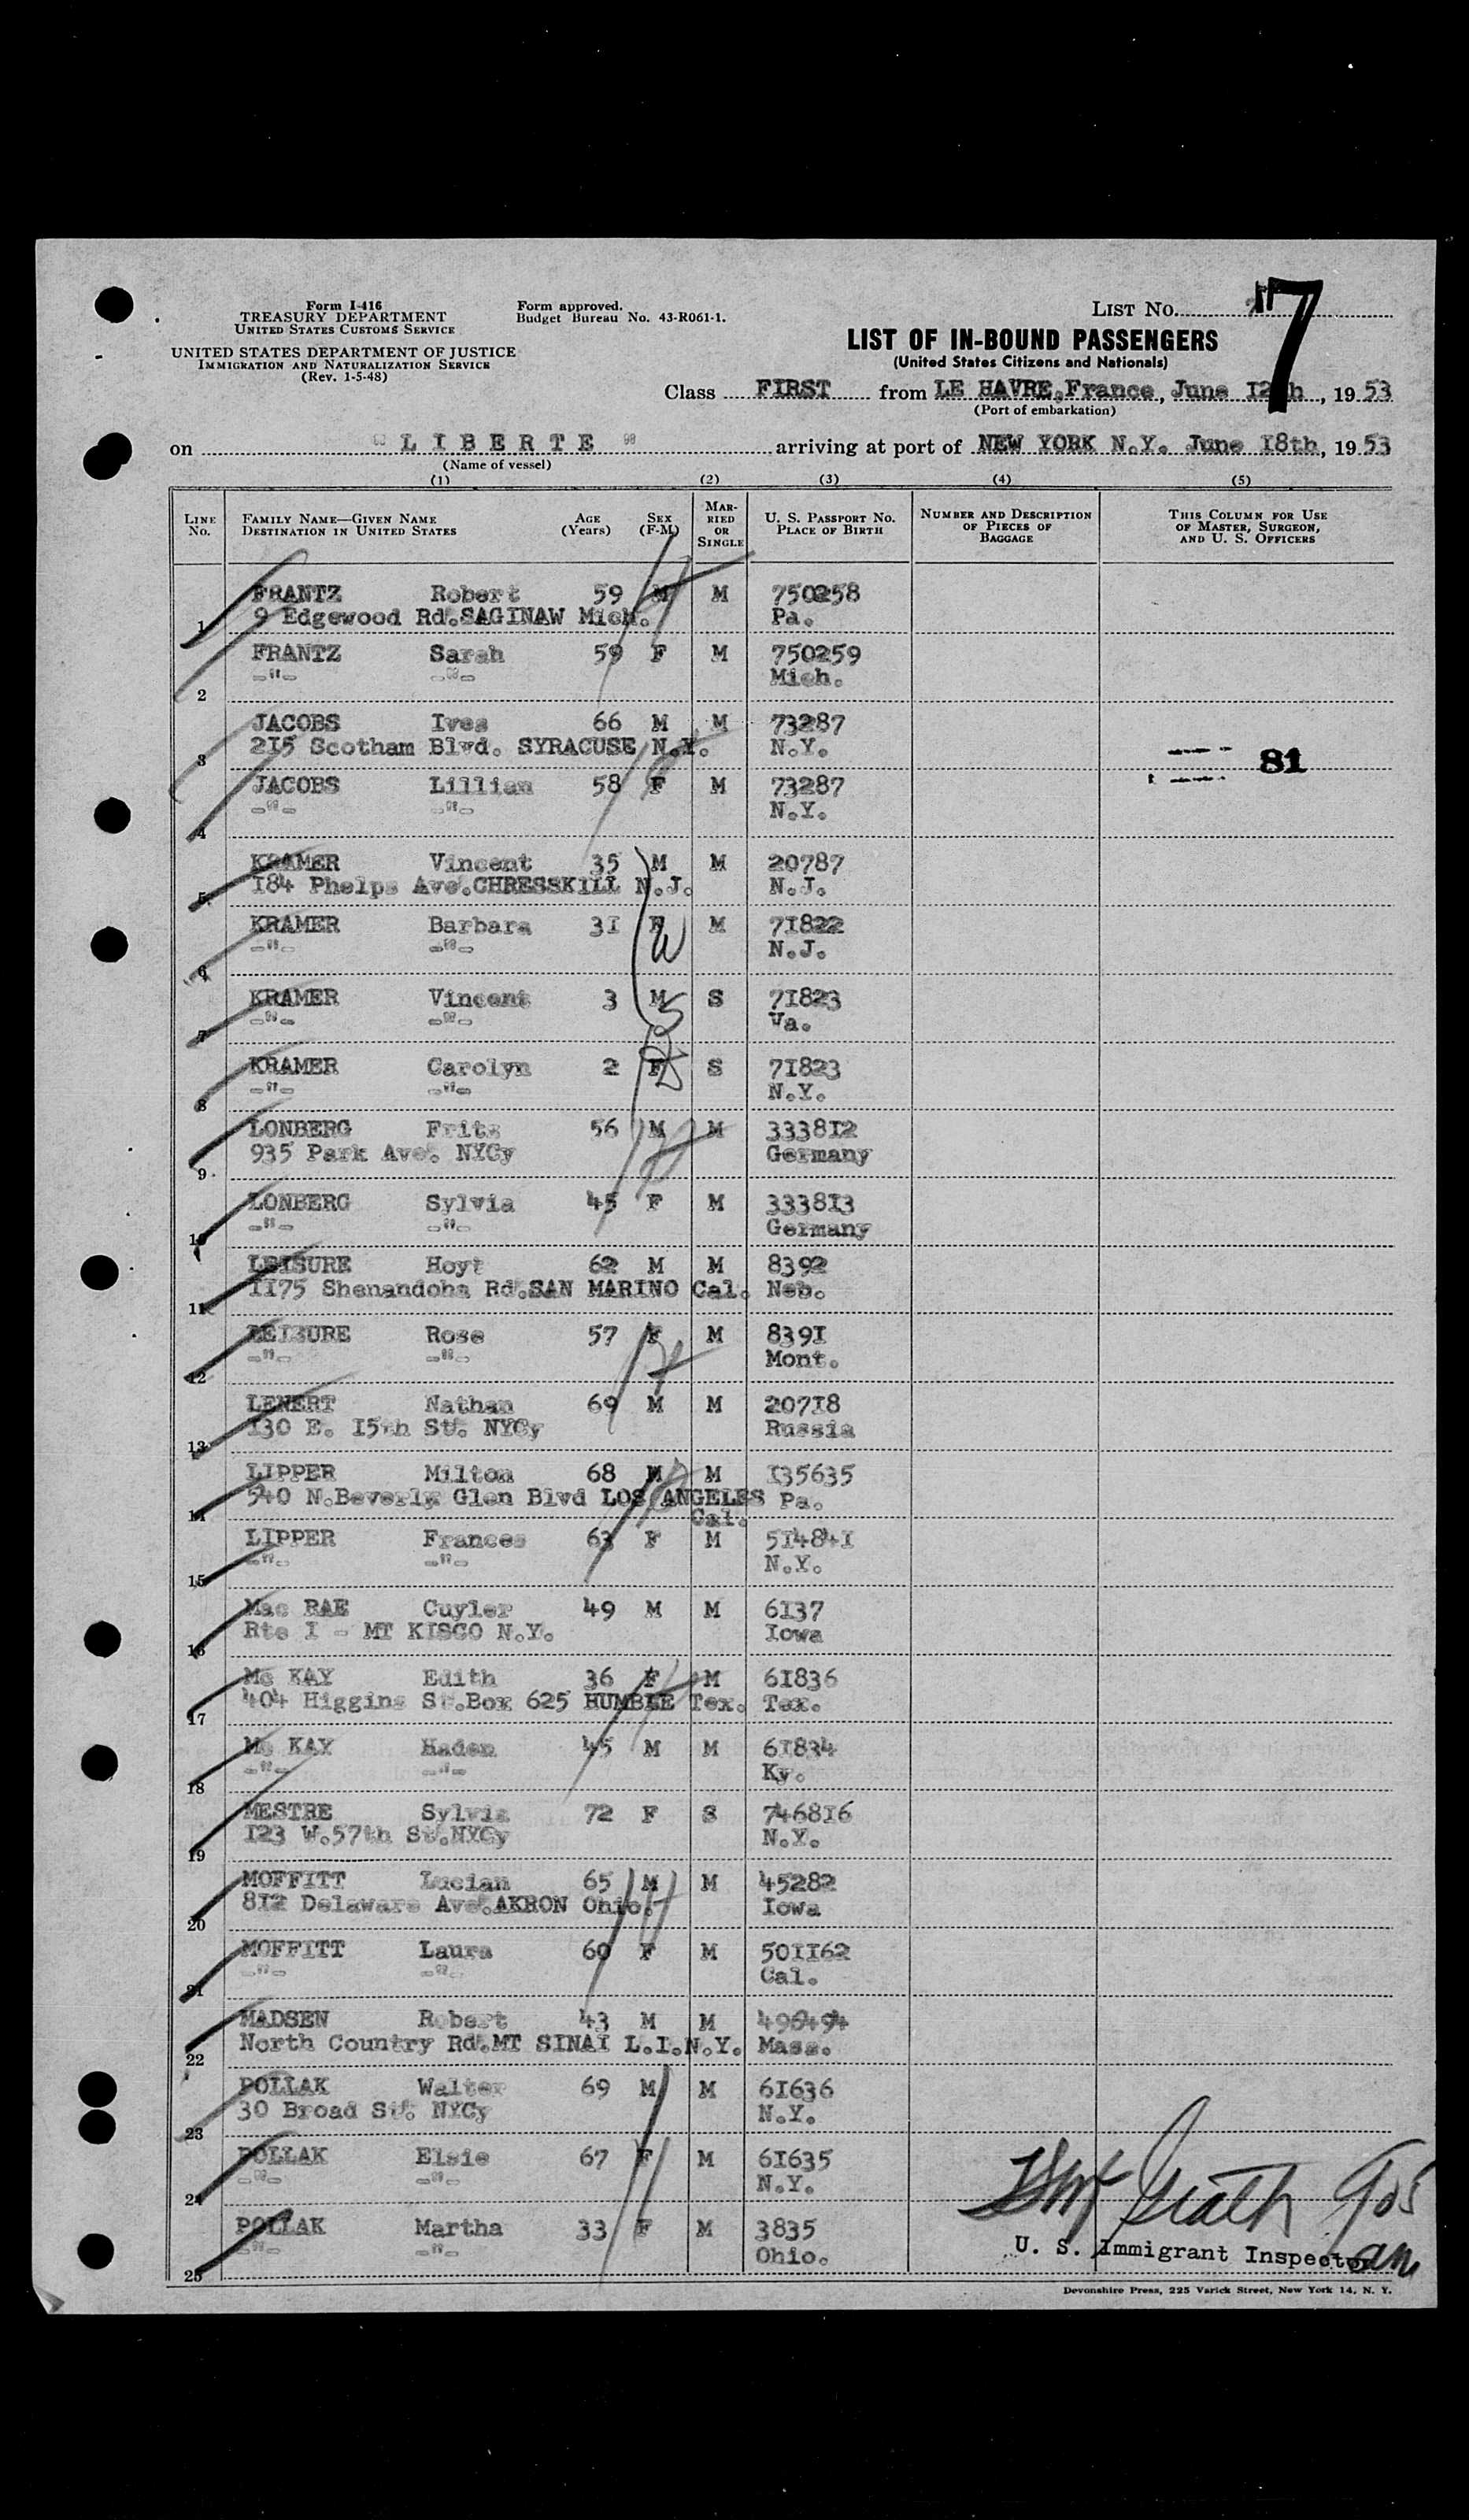 Form I-416
TREASURY DEPARTMENT
UNITED STATES CUSTOMS SERVICE
UNITED STATES DEPARTMENT OF JUSTICE
IMMIGRATION AND NATURALIZATION SERVICE
(Rev. 1-5-48)
Form approved.
Budget Bureau No. 43-R061-1.
LIST NO. 7
LIST OF IN-BOUND PASSENGERS
(United States Citizens and Nationals)
Class FIRST from LE HAVRE, France, June I2th, 1953
(Port of embarkation)
on "LIBERTE" arriving at port of NEW YORK N.Y. June I8th, 1953
(Name of vessel)
(1) (2) (3) (4) (5)
LINE NO. FAMILY NAME—GIVEN NAME DESTINATION IN UNITED STATES AGE (Years) SEX (F-M) MARRIED OR SINGLE U. S. PASSPORT NO. PLACE OF BIRTH NUMBER AND DESCRIPTION OF PIECES OF BAGGAGE THIS COLUMN FOR USE OF MASTER, SURGEON, AND U. S. OFFICERS
FRANTZ Robert 59 M M 750258
1 9 Edgewood Rd.SAGINAW Mich. Pa.
FRANTZ Sarah 59 F M 750259
2 -"- -"- Mich.
JACOBS Ives 66 M M 73287
3 2I5 Scotham Blvd. SYRACUSE N.Y. N.Y.
81
JACOBS Lillian 58 F M 73287
4 -"- -"- N.Y.
KRAMER Vincent 35 M M 20787
5 I84 Phelps Ave.CHRESSKILL N.J. N.J.
KRAMER Barbara 3I F M 7I822
6 -"- -"- N.J.
KRAMER Vincent 3 M S 7I823
7 -"- -"- Va.
KRAMER Carolyn 2 F S 7I823
8 -"- -"- N.Y.
LONBERG Fritz 56 M M 3338I2
9 935 Park Ave. NYCy Germany
LONBERG Sylvia 45 F M 3338I3
10 -"- -"- Germany
LEISURE Hoyt 62 M M 8392
11 II75 Shenandoha Rd.SAN MARINO Cal. Neb.
LEISURE Rose 57 F M 839I
12 -"- -"- Mont.
LENERT Nathan 69 M M 207I8
13 I30 E. I5th St. NYCy Russia
LIPPER Milton 68 M M I35635
14 540 N.Beverly Glen Blvd LOS ANGELES Pa.
Cal.
LIPPER Frances 63 F M 5I484I
15 -"- -"- N.Y.
Mac RAE Cuyler 49 M M 6I37
16 Rte I - MT KISCO N.Y. Iowa
Mc KAY Edith 36 F M 6I836
17 404 Higgins St.Box 625 HUMBLE Tex. Tex.
Mc KAY Haden 45 M M 6I834
18 -"- -"- Ky.
MESTRE Sylvia 72 F S 7468I6
19 I23 W.57th St.NYCy N.Y.
MOFFITT Lucian 65 M M 45282
20 8I2 Delaware Ave.AKRON Ohio. Iowa
MOFFITT Laura 60 F M 50II62
21 -"- -"- Cal.
MADSEN Robert 43 M M 496494
22 North Country Rd.MT SINAI L.I.N.Y. Mass.
POLLAK Walter 69 M M 6I636
23 30 Broad St. NYCy N.Y.
POLLAK Elsie 67 F M 6I635
24 -"- -"- N.Y.
POLLAK Martha 33 F M 3835
25 -"- -"- Ohio.
U. S. Immigrant Inspector
Devonshire Press, 225 Varick Street, New York 14, N. Y.